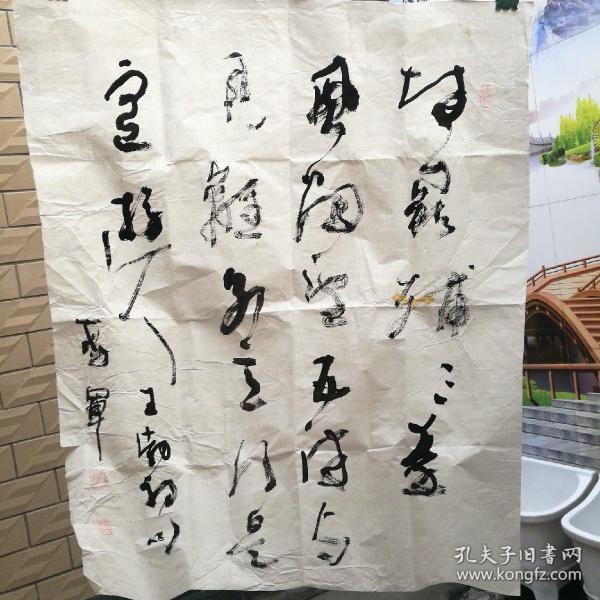 城闕辅三秦
風烟望五津与
君離别意同是
宦遊人
王勃诗句
軍
孔夫子旧书网
www.kongfz.com